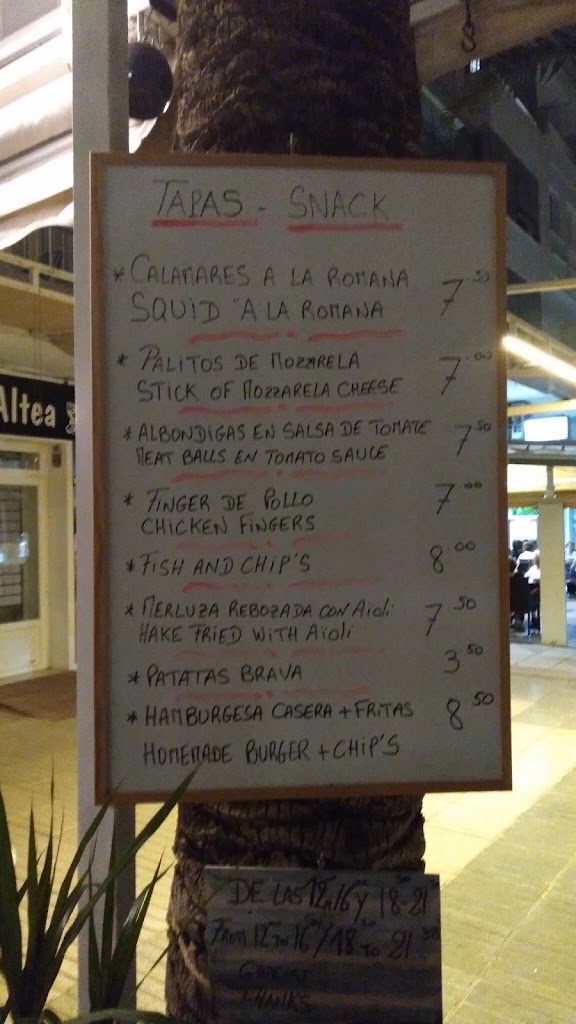 TAPAS - SNACK
* CALAMARES A LA ROMANA 7.50
SQUID "A LA ROMANA
* PALITOS DE MOZZARELA 7.00
STICK OF MOZZARELA CHEESE
* ALBONDIGAS EN SALSA DE TOMATE 7 50
MEAT BALLS EN TOMATO SAULE
* FINGER DE POLLO 7.00
CHICKEN FINGERS
* FISH AND CHIP'S 8 00
* MERLUZA REBOZADA CON Aioli 7 50
HAKE FRIED WITH Aïoli
* PATATAS BRAVA 3 50
* HAMBURGESA CASERA + FRITAS 8 50
HOMEMADE BURGER + CHIP'S
Altea
DE LAS 12 A 16 Y 18-21
FROM 12 TO 16 / 18 TO 21
GRACIAS
THANKS